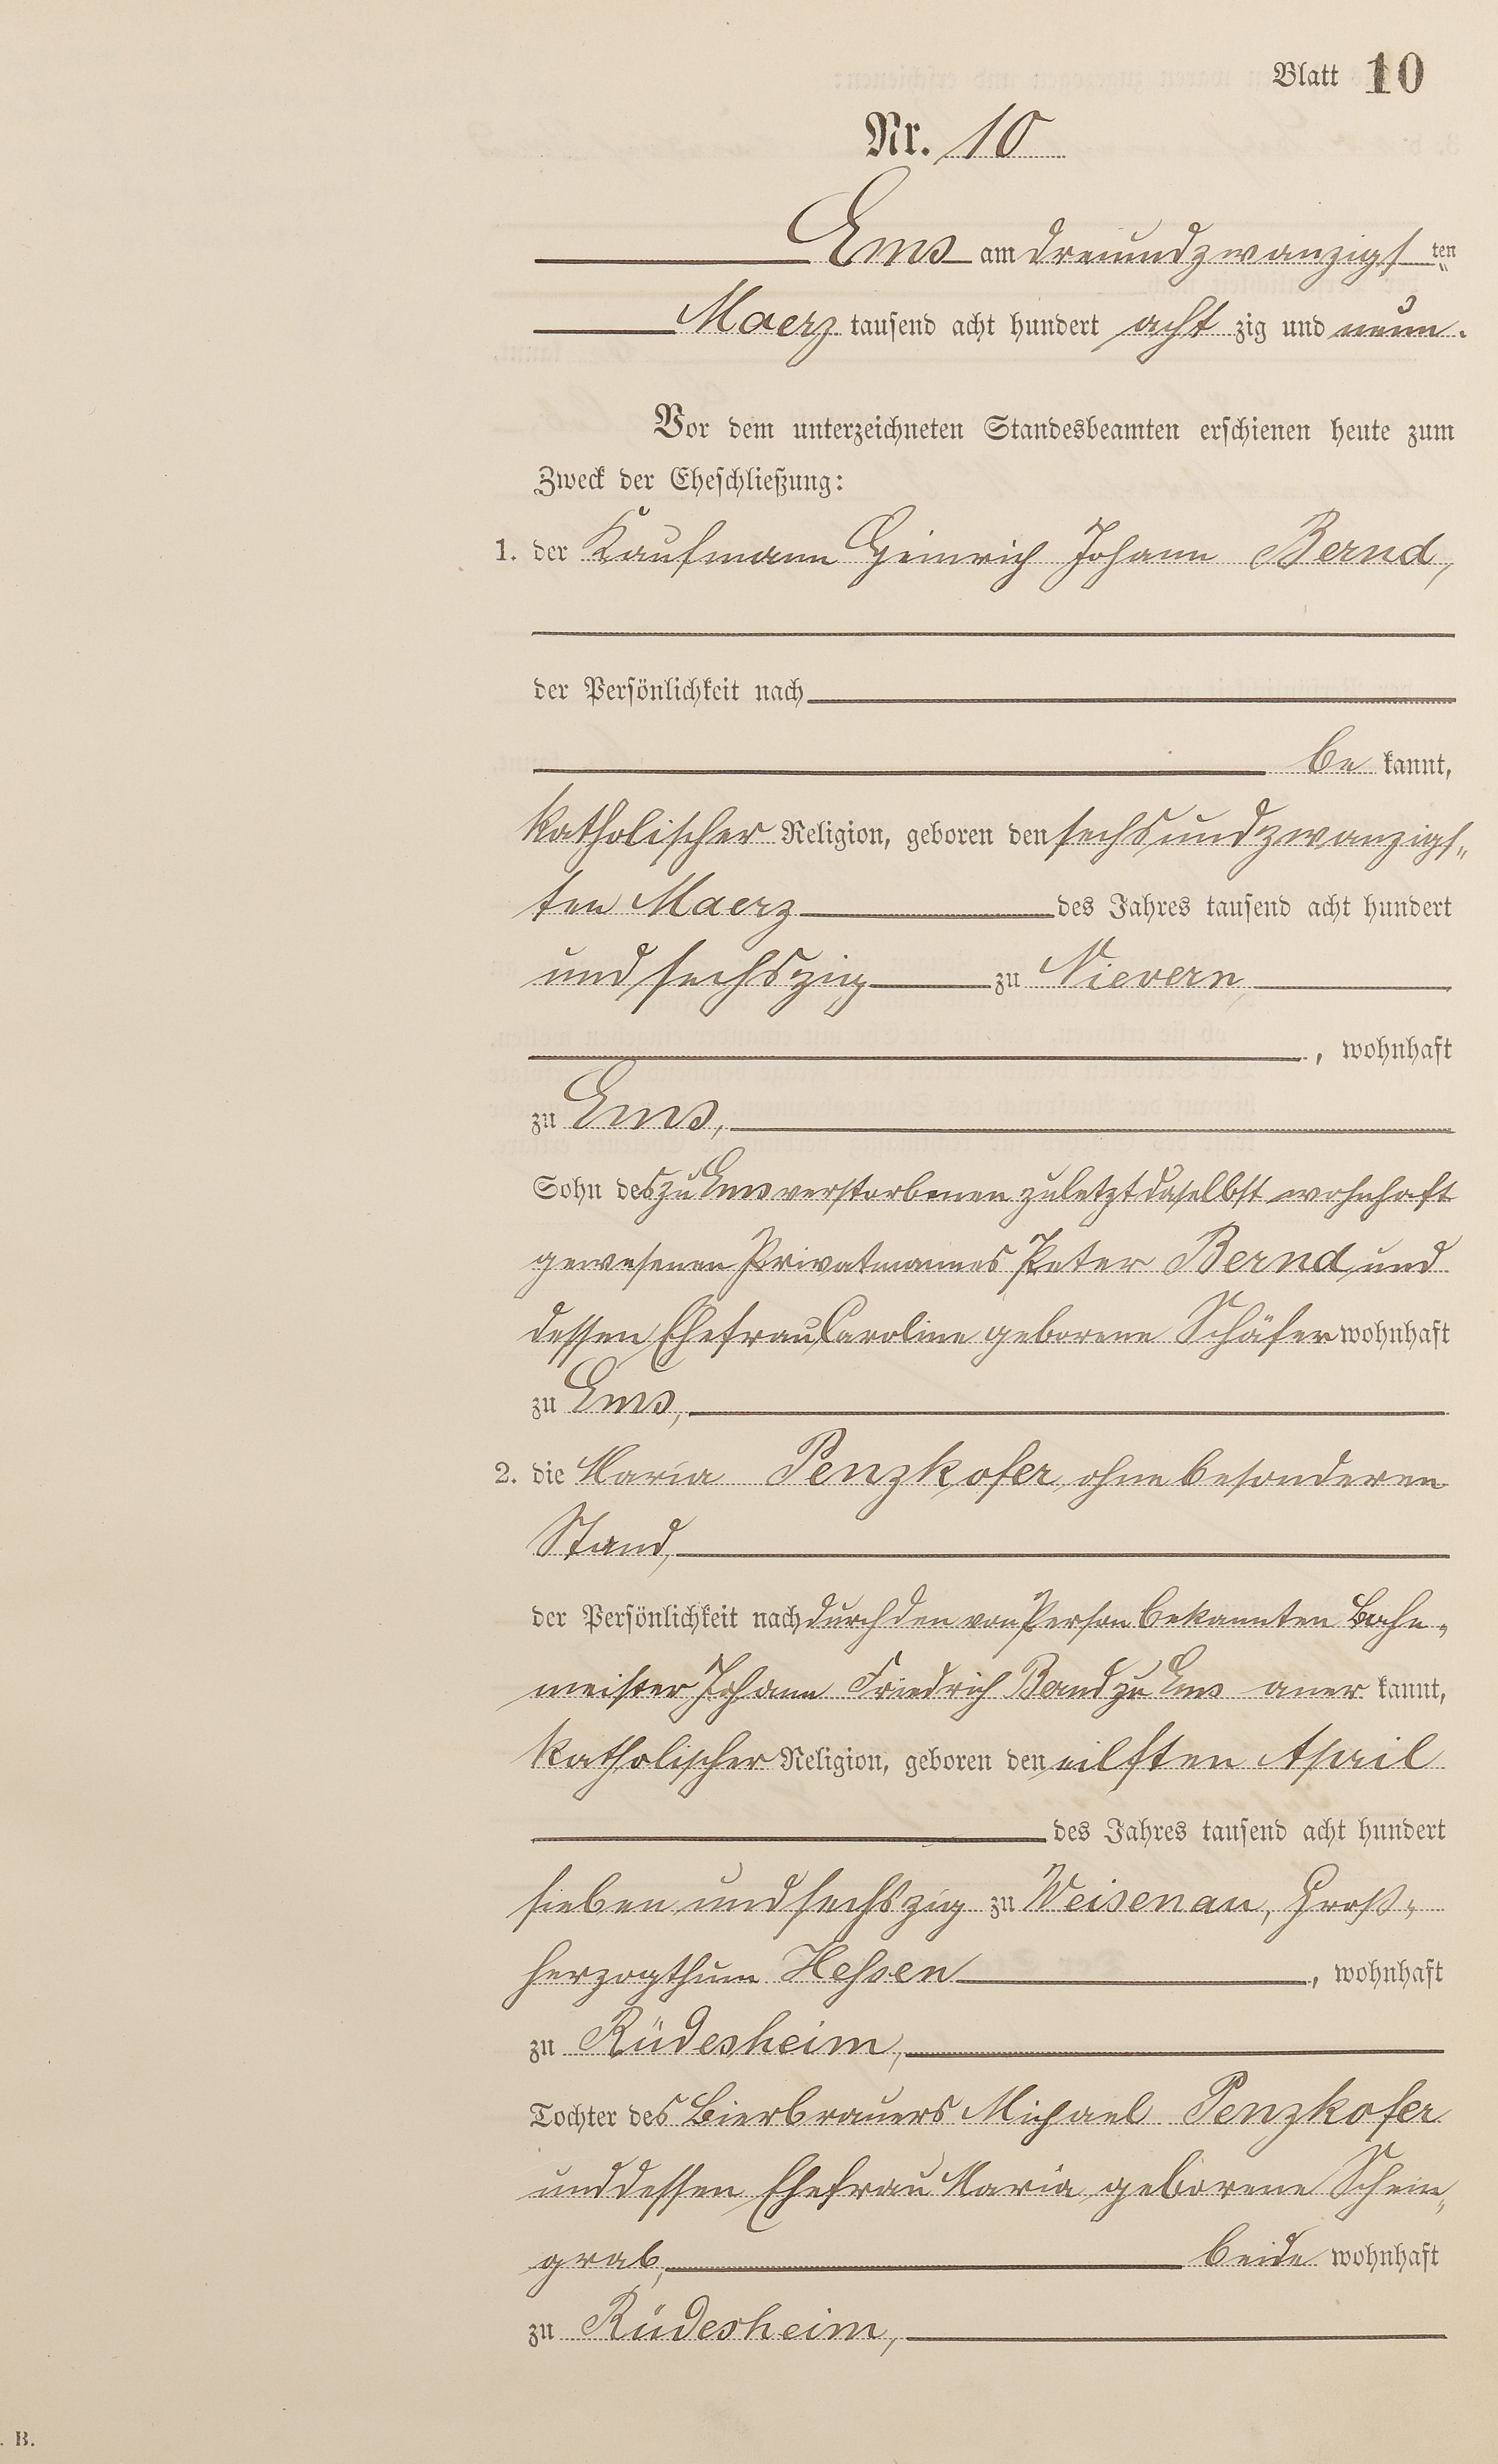 Blatt 10
Nr. 10
Ems am dreiundzwanzigs ten
Maerz tausend acht hundert acht zig und neun.
Vor dem unterzeichneten Standesbeamten erschienen heute zum
Zweck der Eheschließung:
1. der Kaufmann Heinrich Johann Bernd,
der Persönlichkeit nach
be kannt,
katholischer Religion, geboren den sechsundzwanzigs„
ten Maerz des Jahres tausend acht hundert
und sechszig zu Nievern,
, wohnhaft
zu Ems,
Sohn des zu Ems verstorbenen zuletzt daselbst wohnhaft
gewesenen Privatmannes Peter Bernd und
dessen Ehefrau Caroline geborene Schäfer wohnhaft
zu Ems,
2. die Maria Penzkofer, ohne besonderen
Stand,
der Persönlichkeit nach durch den von Person bekannten Bahn„
meister Johann Friedrich Band zu Ems aner kannt,
katholischer Religion, geboren den eilften April
des Jahres tausend acht hundert
sieben und sechszig zu Weisenau, Groß„
herzogthum Hessen, wohnhaft
zu Rüdesheim,
Tochter des Bierbrauers Michael Penzkofer
und dessen Ehefrau Maria geborene Schein„
grab, beide wohnhaft
zu Rüdesheim,
. B.